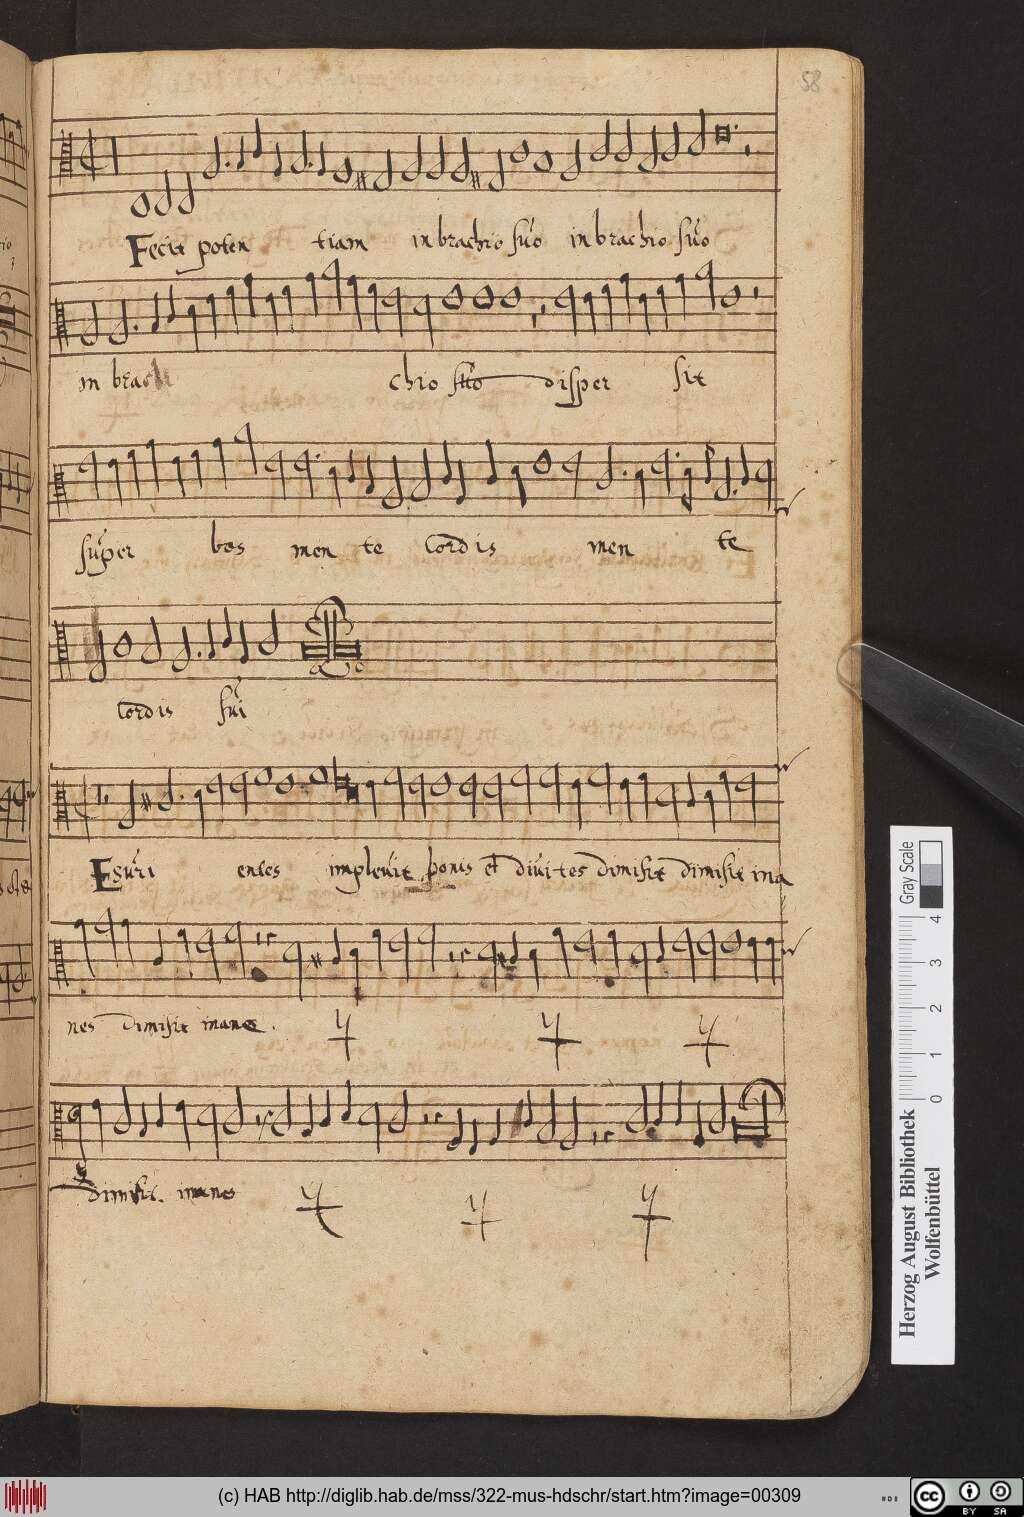 58
Fecit poten tiam in brachio suo in brachio suo
in brach chio suo disper sit
super bos men te Cordis men te
Cordis sui
Esuri entes implevit bonis et divites dimisit dimisit ina
nes dimisit inanes .
dimisit. inanes
Gray Scale
0 1 2 3 4
Herzog August Bibliothek
Wolfenbüttel
(c) HAB http://diglib.hab.de/mss/322-mus-hdschr/start.htm?image=00309
cc BY SA